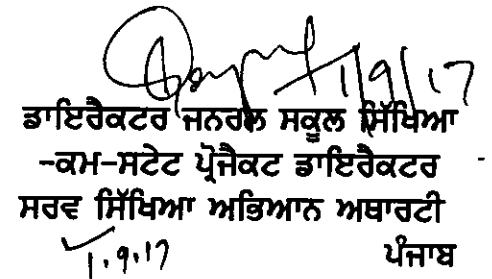 1/9/17
ਡਾਇਰੈਕਟਰ ਜਨਰਲ ਸਕੂਲ ਸਿੱਖਿਆ
-ਕਮ-ਸਟੇਟ ਪ੍ਰੋਜੈਕਟ ਡਾਇਰੈਕਟਰ
ਸਰਵ ਸਿੱਖਿਆ ਅਭਿਆਨ ਅਥਾਰਟੀ
1.9.17 ਪੰਜਾਬ